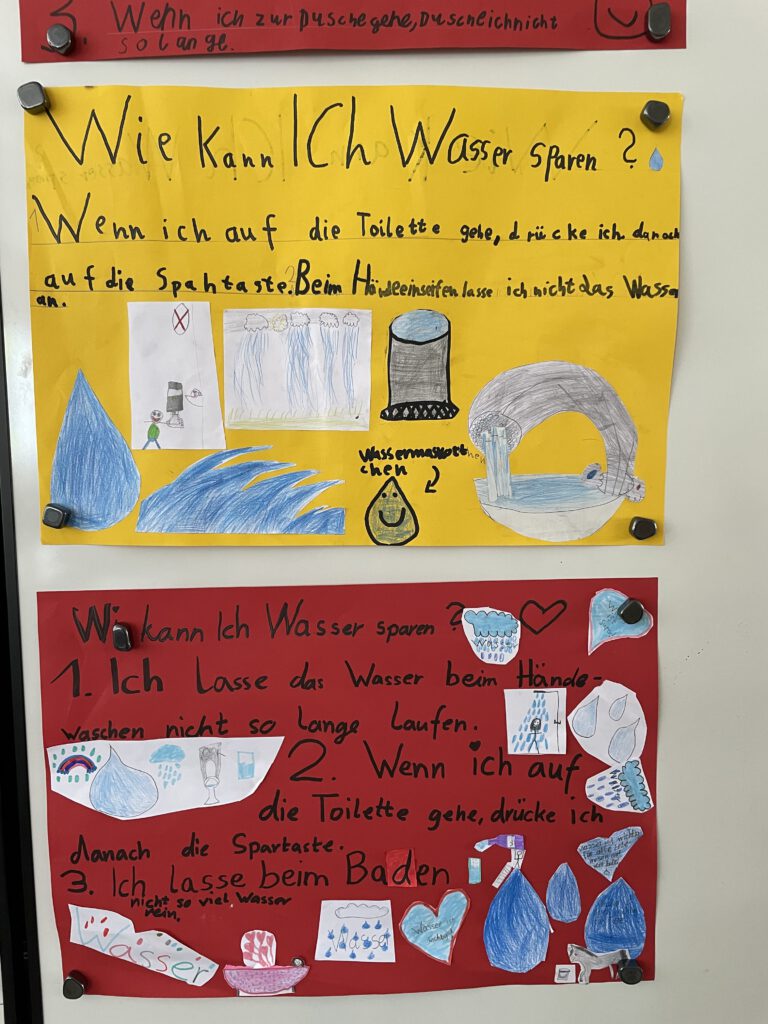 3. Wenn ich zur Dusche gehe, Dusche ich nicht
so lange.
Wie kann ICH Wasser sparen?
1 Wenn ich auf die Toilette gehe, drücke ich danach
auf die Spahtaste. 2 Beim Händeeinseifen lasse ich nicht das Wasser
an.
Wassermaskott
chen
Wie kann Ich Wasser sparen?
1. Ich lasse das Wasser beim Hände-
waschen nicht so lange laufen.
2. Wenn ich auf
die Toilette gehe, drücke ich
danach die Spartaste.
3. Ich lasse beim Baden
nicht so viel Wasser
rein.
Wasser
Wasser
Wasser